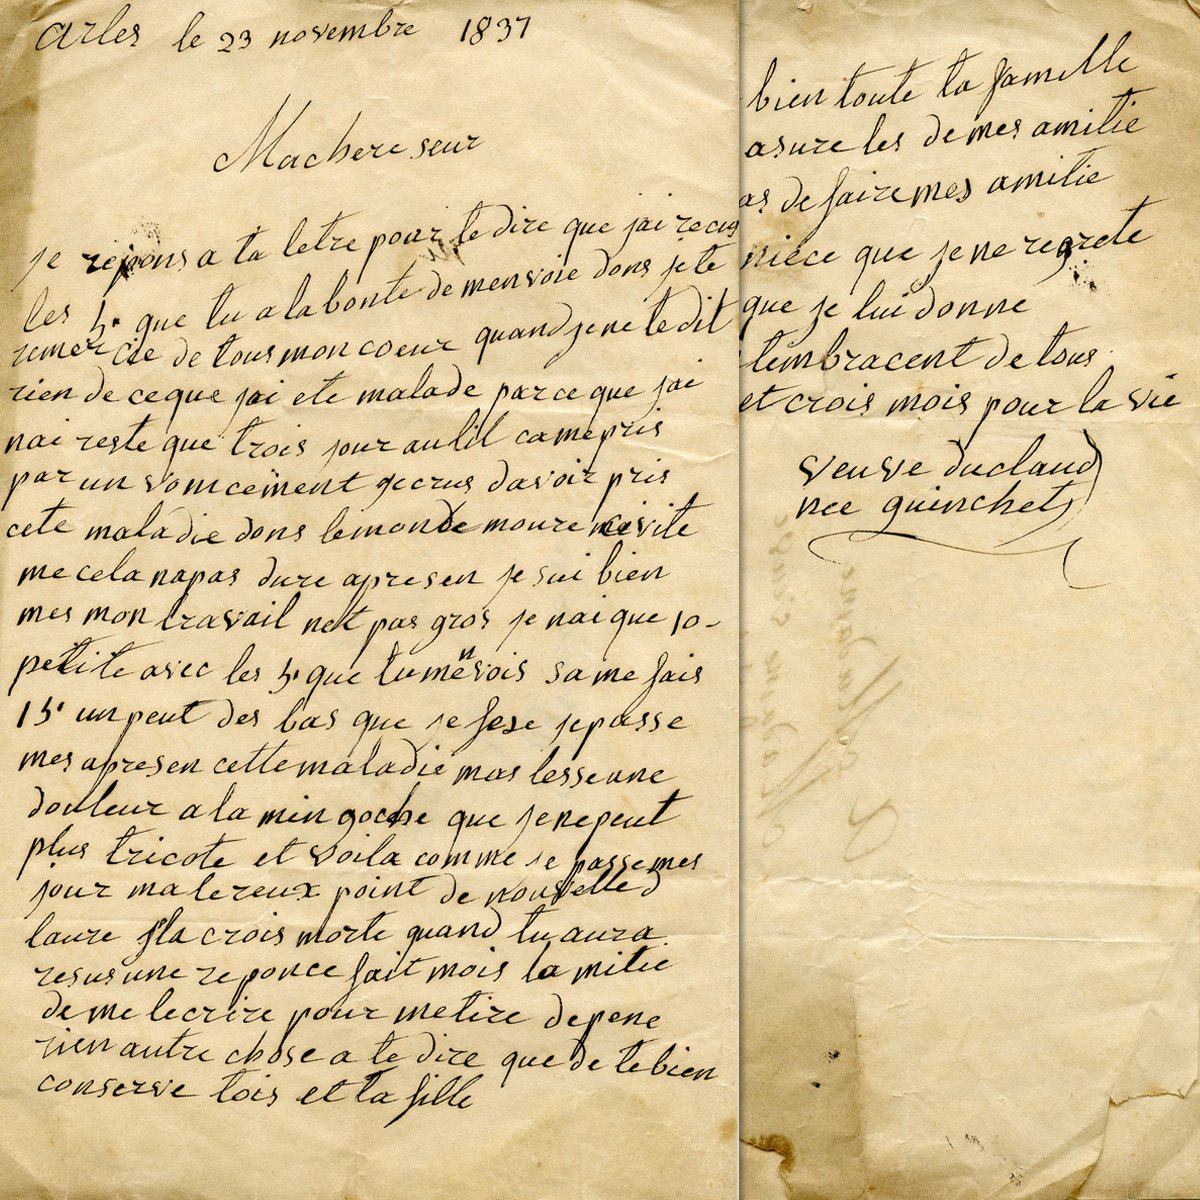 arles le 23 novembre 1837
Machere seur
je repons a ta letre pour te dire que jai recus
les 5f que tu a la bonte de menvoie dons je te
remer cie de tous mon coeur quand je ne te dit
rien de ceque jai ete malade parce que jai
nai reste que trois jour au lil ca me pris
par un vomcëment gecrus davoir pris
cete maladie dons lemonde moure vite
me cela napas dure apresen je sui bien
mes mon travail net pas gros je nai que 10-
petite avec les 5f que tu menvois sa me fais
15f un peut des bas que je fese je passe
mes apresen cette maladie mas lesse une
douleur a la min goche que je ne peut
plus tricote et voila comme je passe mes
jour malereux point de nouvelle d
laure je la crois morte quand tu aura
resus une reponce fait mois la mitie
de me lecrire pour me tire de pene
rien autre chose a te dire que de te bien
conserve tois et ta fille
bien toute ta famille
asure les de mes amitie
as de faire mes amitie
niece que je ne regrete
que je lui donne
tembracent de tous
et crois mois pour la vie
veuve duclaud
nee guinchet